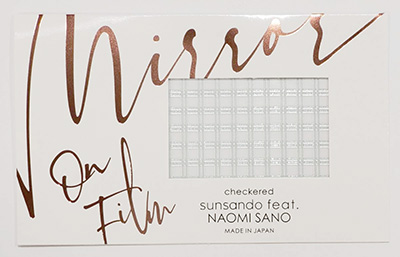 Mirror
On
Film
checkered
sunsando feat.
NAOMI SANO
MADE IN JAPAN